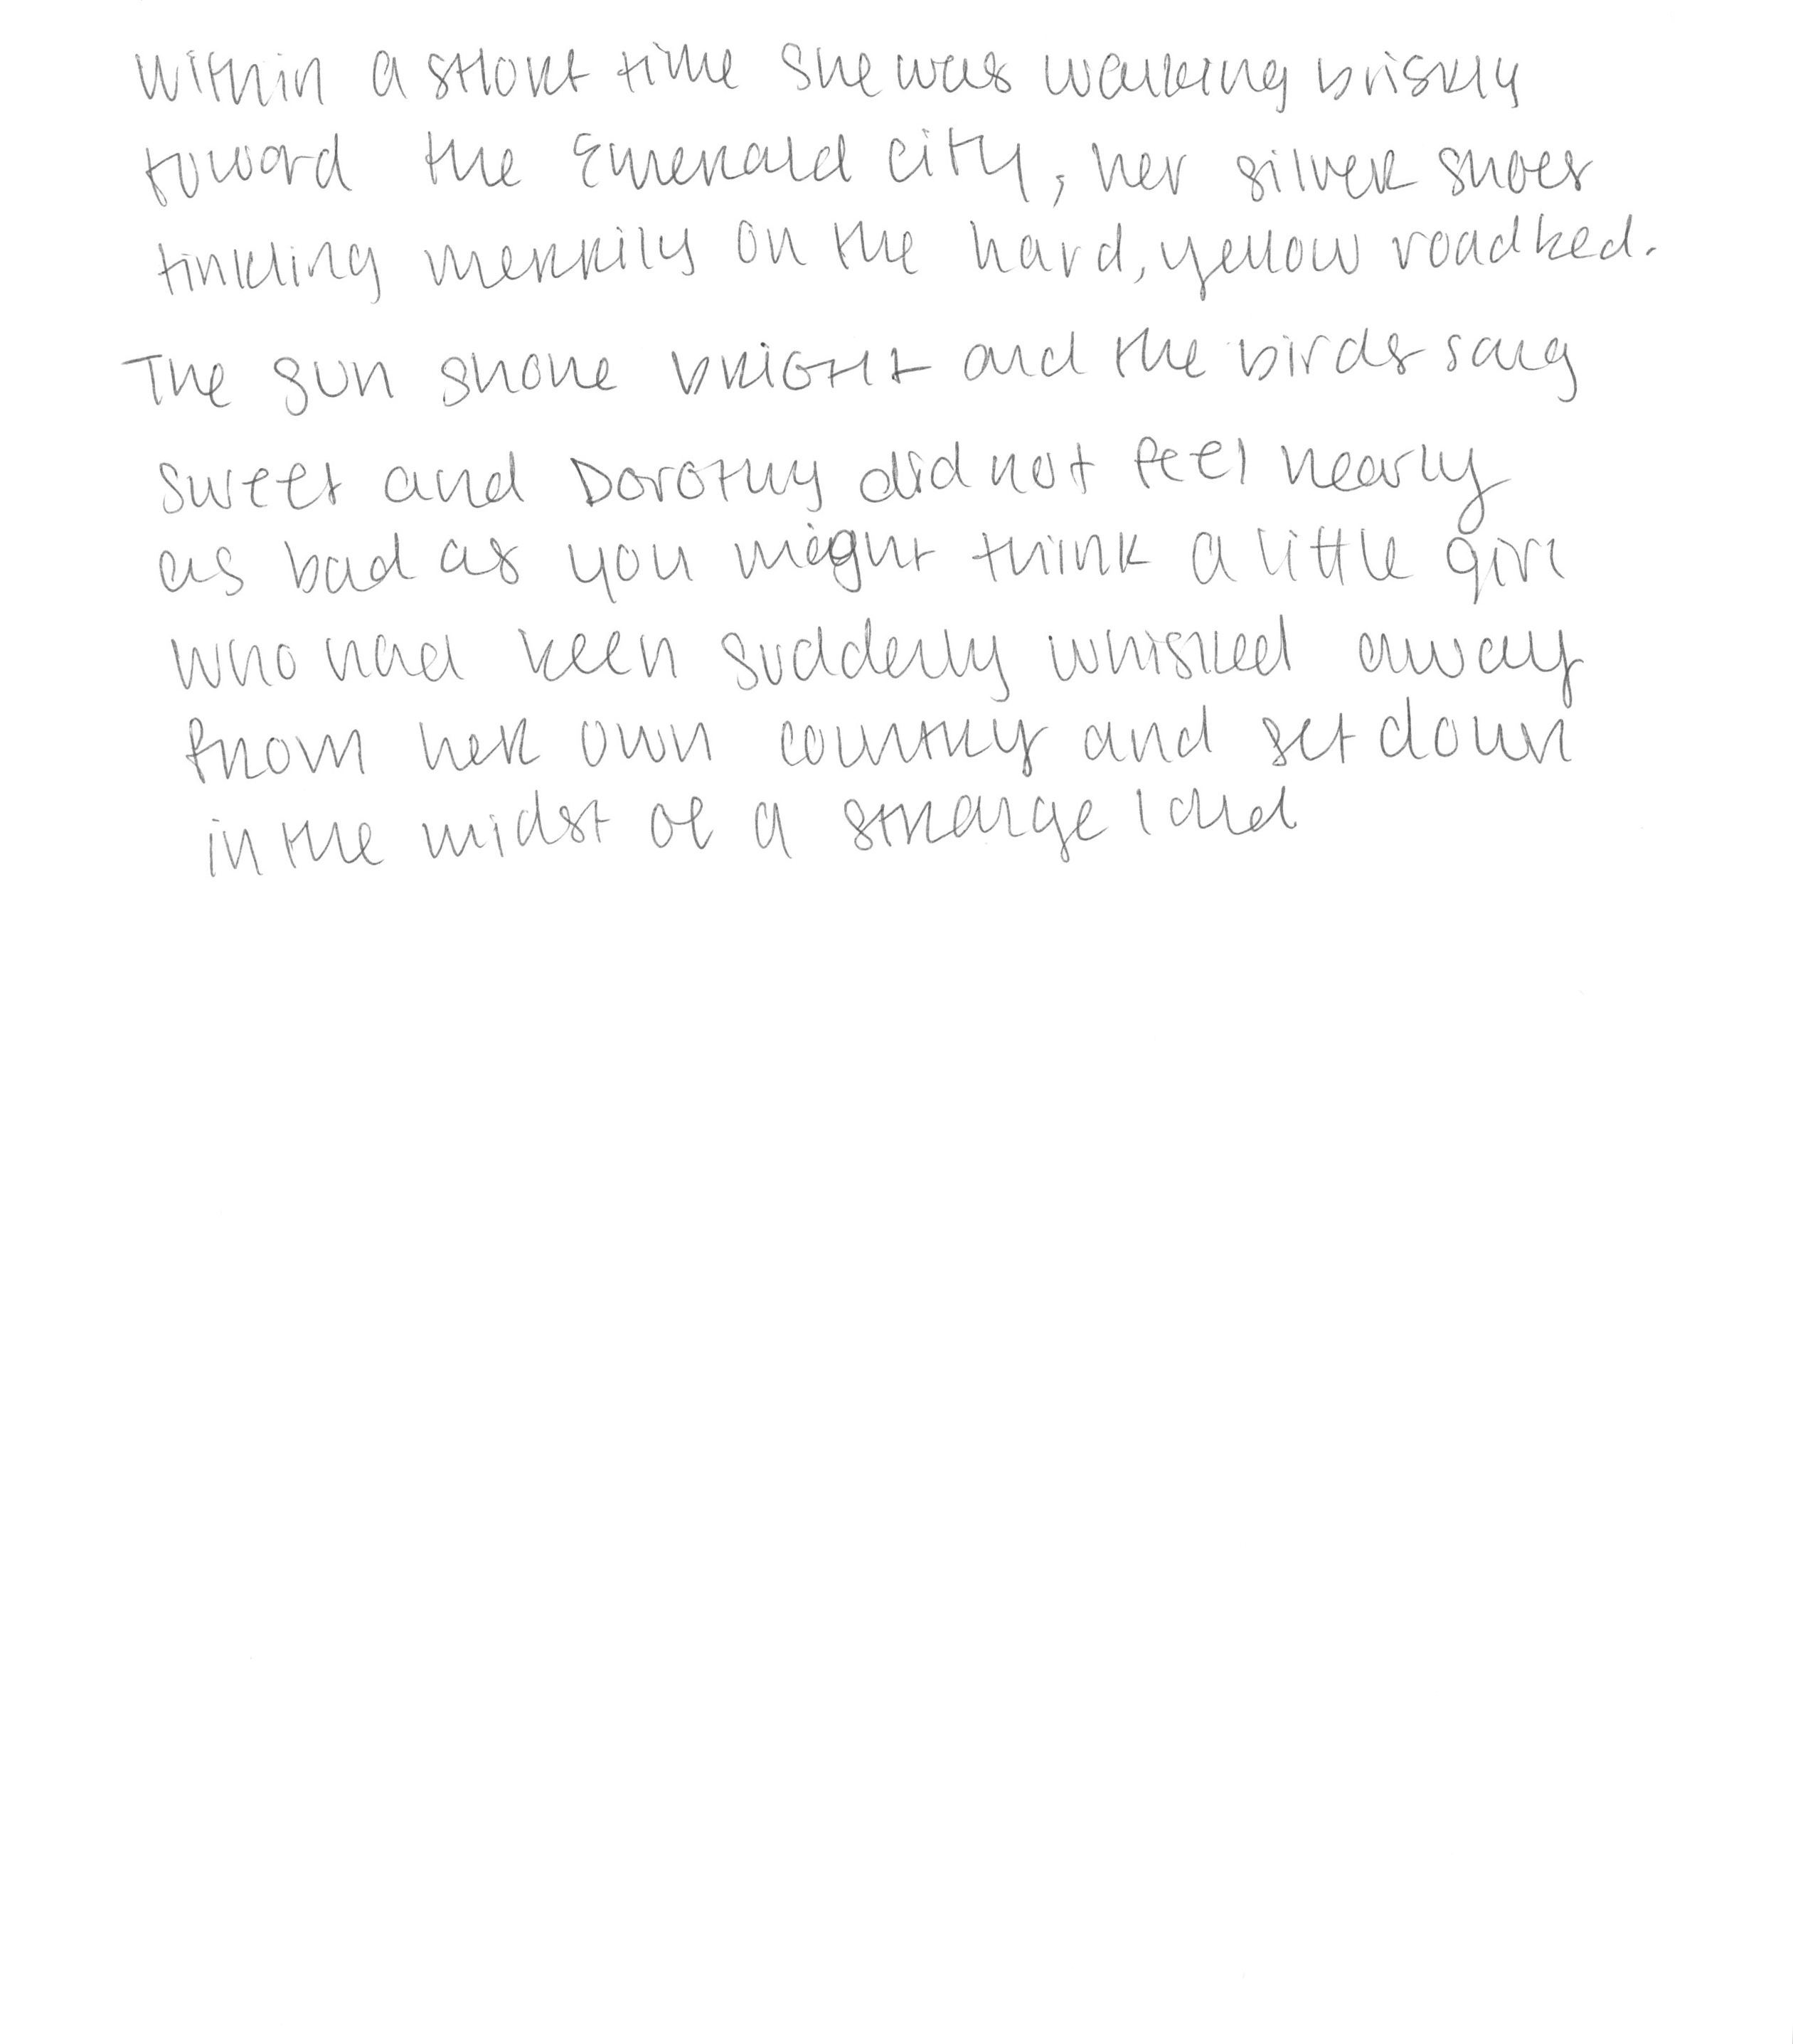 Within a short time she was walking briskly
toward the Emerald City, her silver shoes
tinkling merrily on the hard, yellow roadbed.
The sun shone bright and the birds sang
sweet and Dorothy did not feel nearly
as bad as you might think a little girl
who had been suddenly whisked away
from her own country and set down
in the midst of a strange land